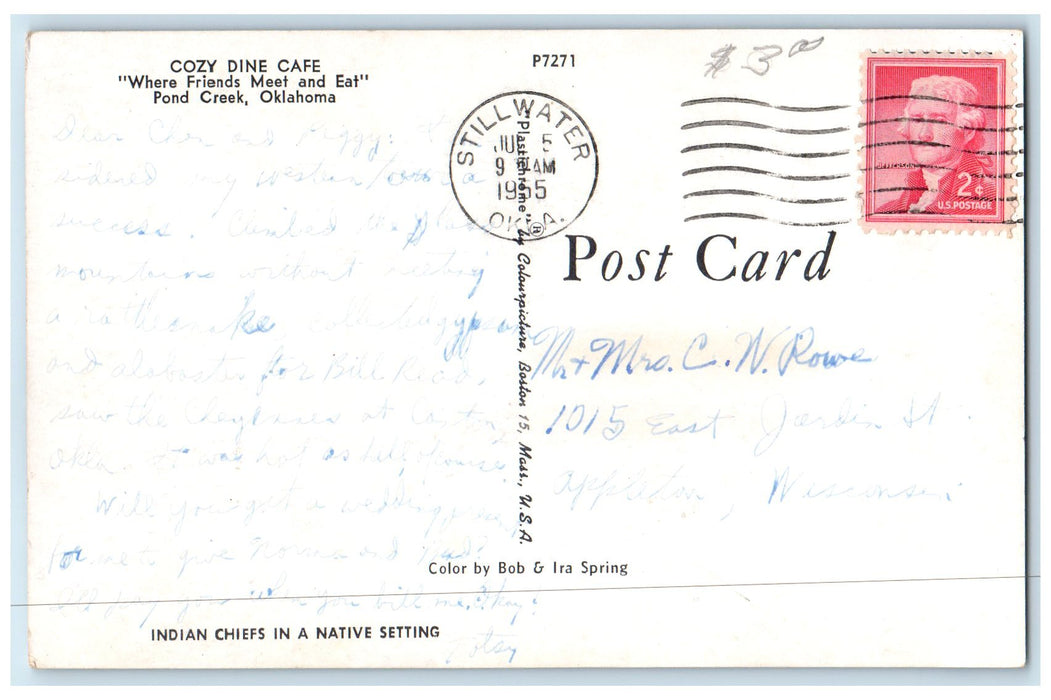 COZY DINE CAFE
"Where Friends Meet and Eat"
Pond Creek, Oklahoma
P7271
$3.00
STILLWATER
5
9 AM
1955
OKLA.
JEFFERSON
2¢
U.S. POSTAGE
Post Card
"Plastichrome"® by Colourpicture, Boston 15, Mass., U.S.A.
Dear Chet and Peggy:
sidered my western a
success. Climbed
mountains without meeting
a rattlesnake, collected gypsum
and alabaster for Bill Read,
saw the Cheyennes at Canton,
Okla. It was hot as hell, of course.
Will you get a wedding present
for me to give Norma and
I'll pay you when you bill me. Okay?
Mr + Mrs. C. W. Rowe
1015 East Jardin St.
Appleton, Wisconsin
Color by Bob & Ira Spring
INDIAN CHIEFS IN A NATIVE SETTING